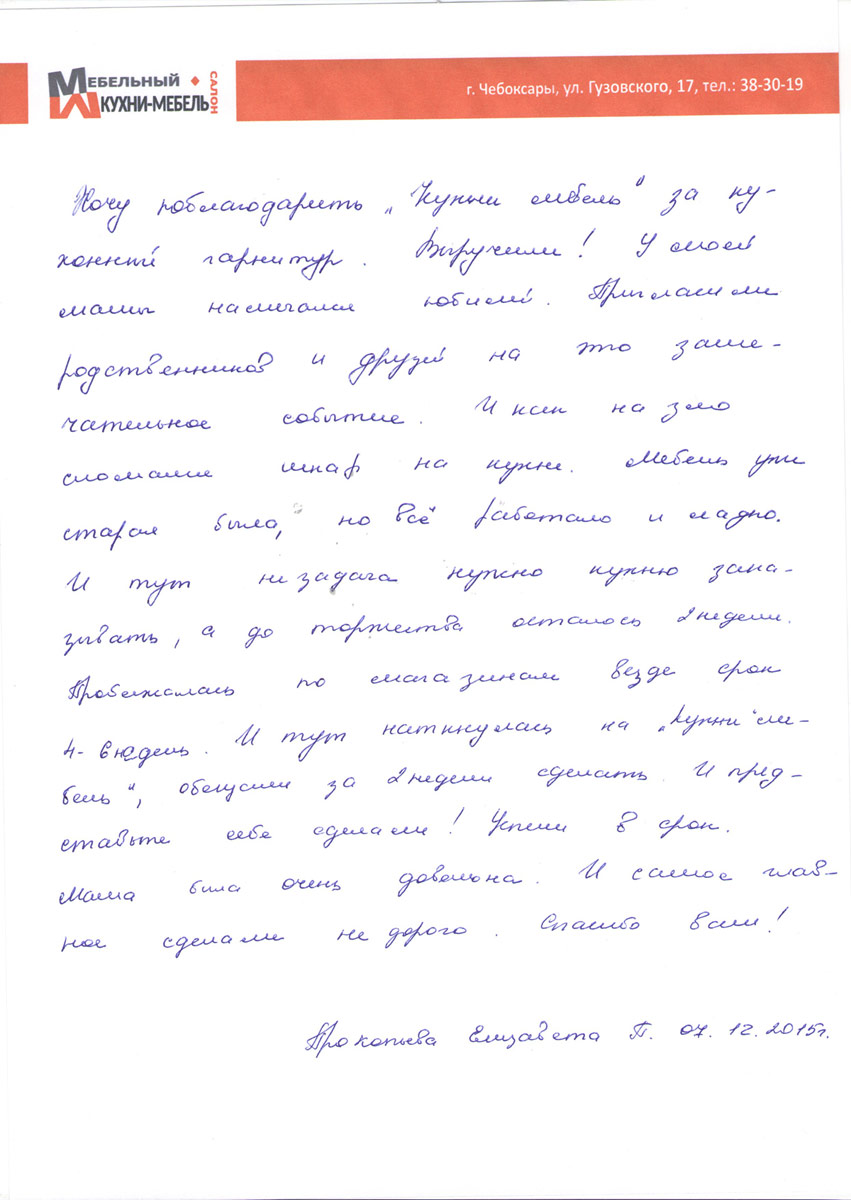 МЕБЕЛЬНЫЙ
КУХНИ-МЕБЕЛЬ
САЛОН
г. Чебоксары, ул. Гузовского, 17, тел.: 38-30-19
Хочу поблагодарить „Кухни мебель" за ку-
хонный гарнитур. Выручили! У моей
мамы намечался юбилей. Пригласили
родственников и друзей на это заме-
чательное событие. И как на зло
сломался шкаф на кухне. Мебель уже
старая была, но всё работало и ладно.
И тут незадача нужно кухню зака-
зывать, а до торжества осталось 2 недели.
Пробежалась по магазинам везде срок
4- 6 недель. И тут наткнулась на „Кухни ме-
бель", обещали за 2 недели сделать. И пред-
ставьте себе сделали! Успели в срок.
Мама была очень довольна. И самое глав-
ное сделали не дорого. Спасибо вам!
Прокопьева Елизавета П. 07.12.2015г.